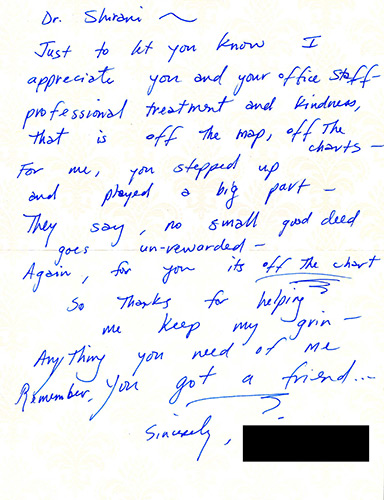 Dr. Shirani ~
Just to let you know I
appreciate you and your office staff-
professional treatment and kindness,
that is off the map, off the
charts -
For me, you stepped up
and played a big part -
They say, no small good deed
goes un-rewarded -
Again, for you its off the chart
So Thanks for helping
me keep my grin -
Anything you need of me
Remember, you got a friend...
Sincerely,